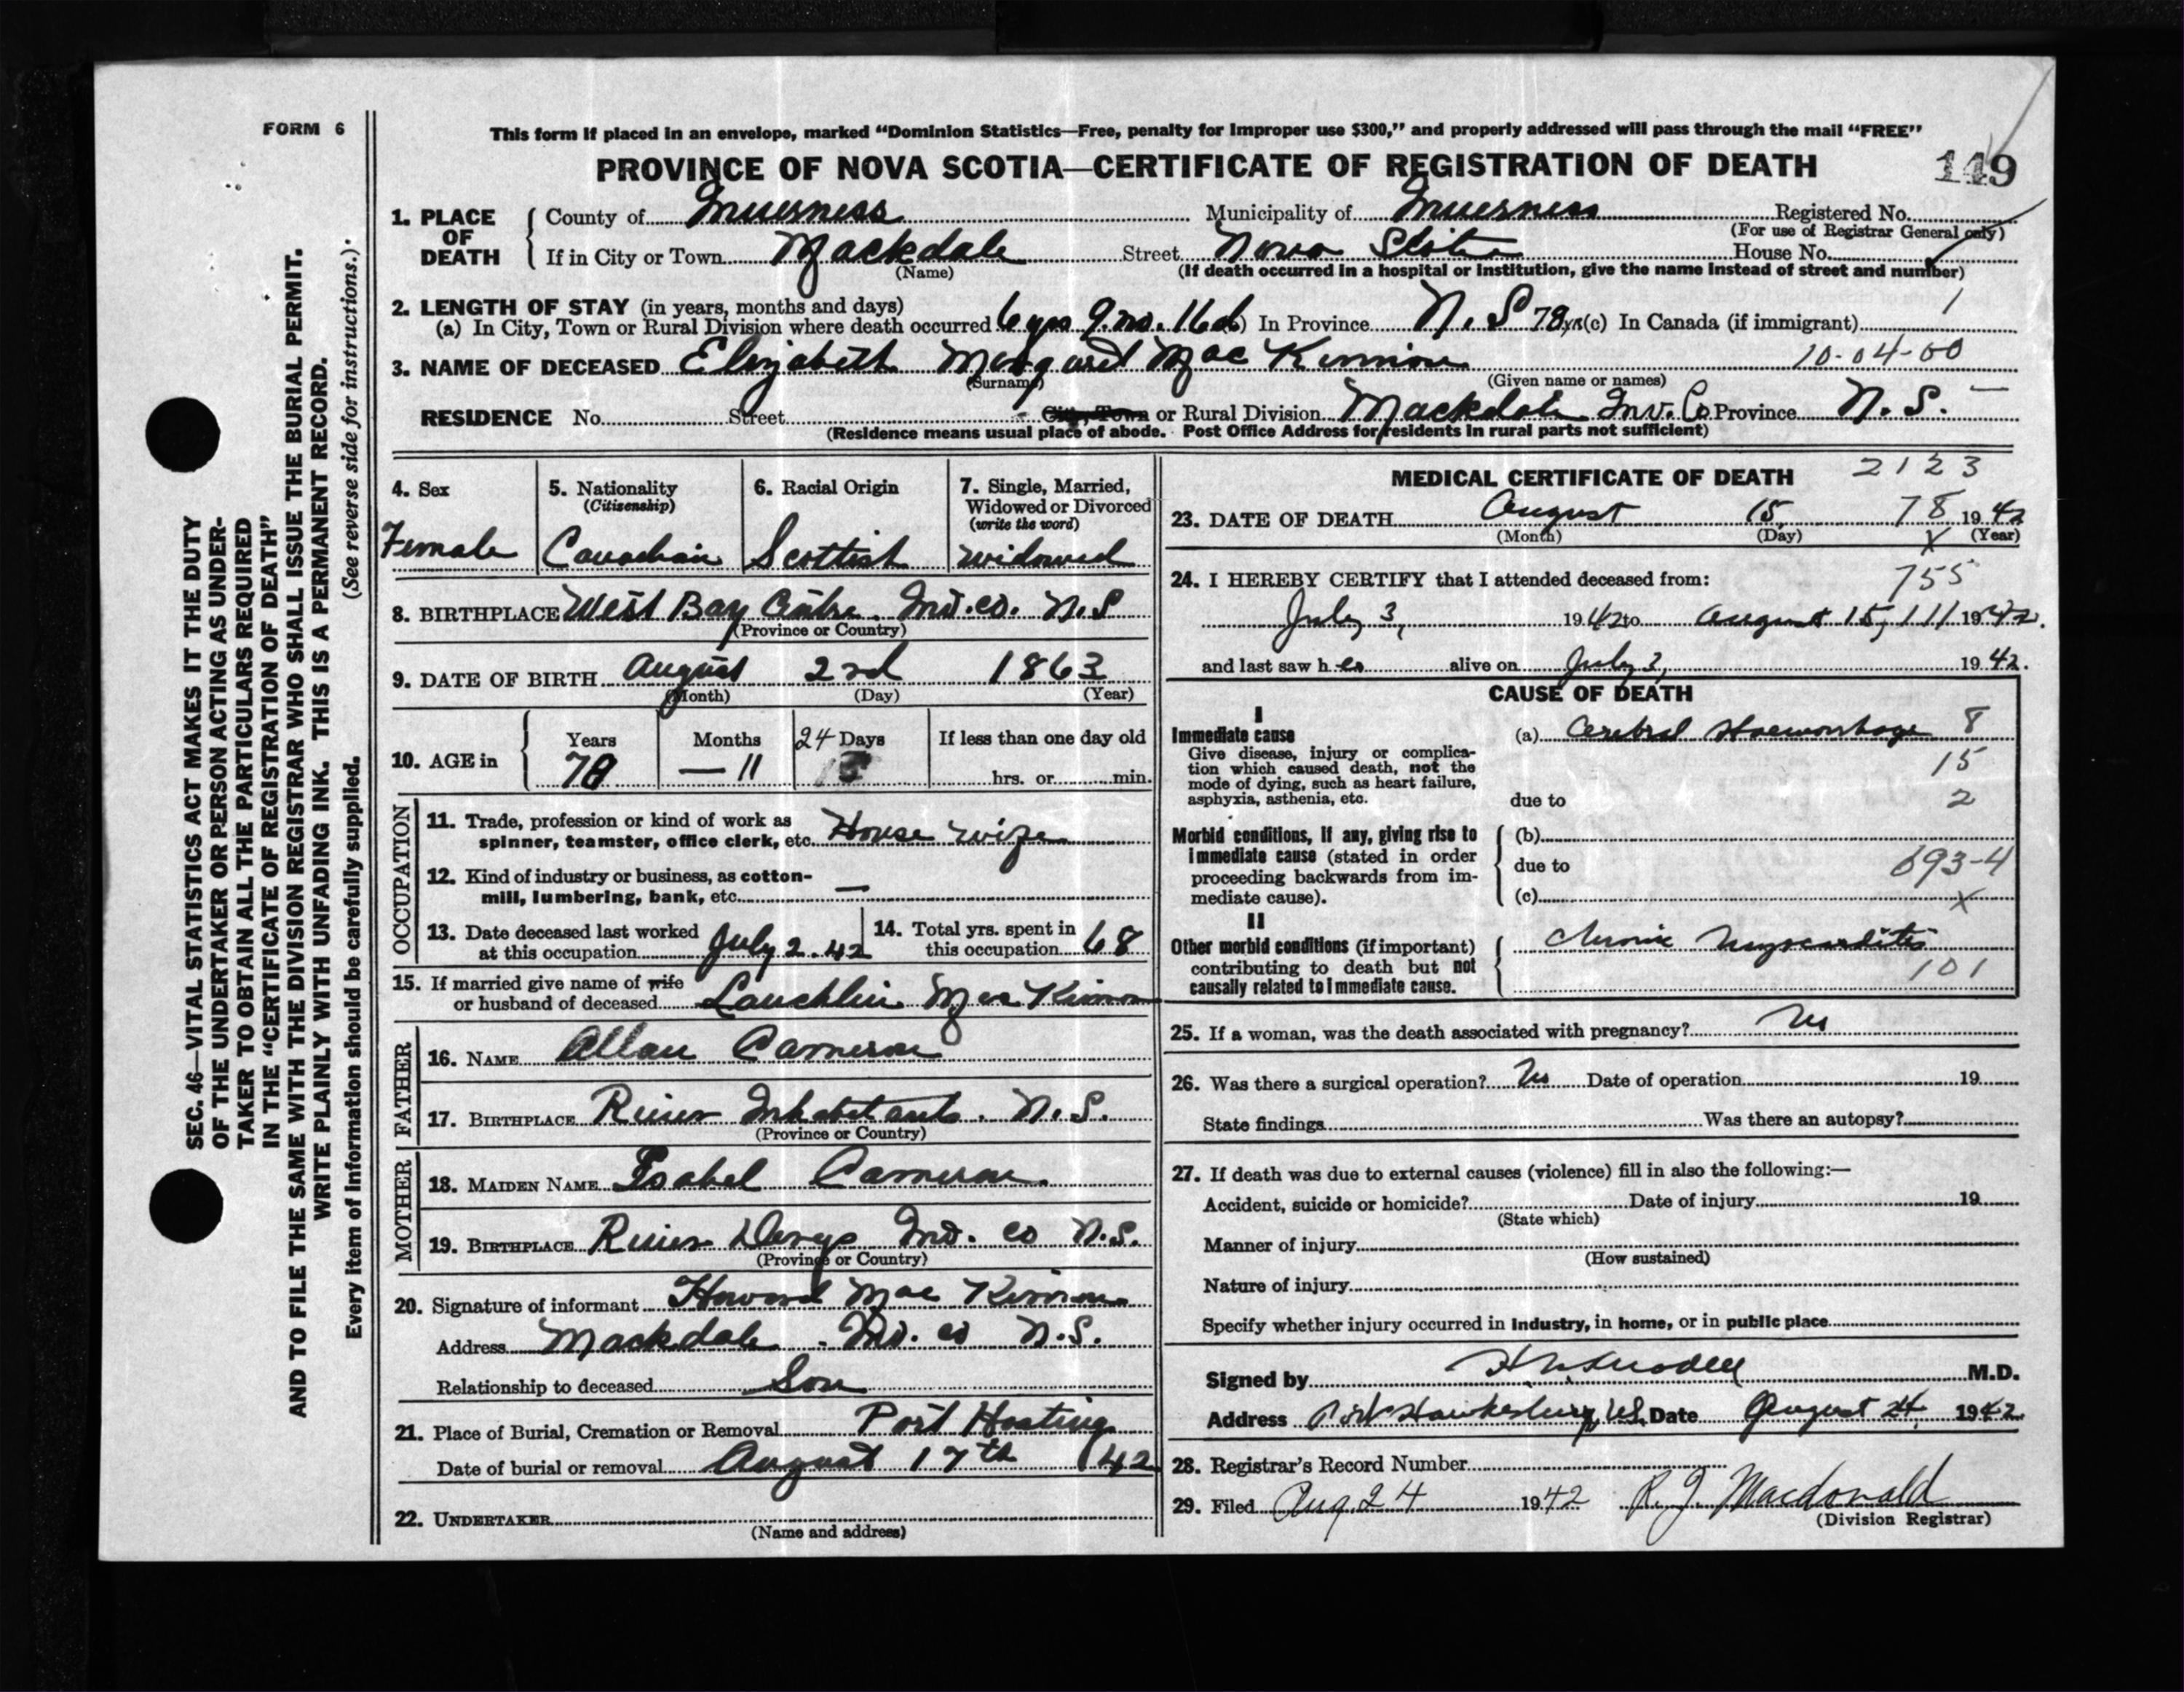 FORM 6
This form if placed in an envelope, marked “Dominion Statistics—Free, penalty for improper use $300,” and properly addressed will pass through the mail “FREE”
PROVINCE OF NOVA SCOTIA—CERTIFICATE OF REGISTRATION OF DEATH
149
1. PLACE OF DEATH
County of Inverness Municipality of Inverness Registered No.
(For use of Registrar General only)
If in City or Town Mackdale Street Nova Scotia House No.
(Name) (If death occurred in a hospital or institution, give the name instead of street and number)
2. LENGTH OF STAY (in years, months and days)
(a) In City, Town or Rural Division where death occurred 6 yrs 9. mo. 16 d) In Province N. S 78 yrs (c) In Canada (if immigrant) 1
3. NAME OF DECEASED Elizabeth Margaret Mac Kinnon 10-04-00
(Surname) (Given name or names)
RESIDENCE No. Street City, Town or Rural Division Mackdale Inv. Co Province N. S. —
(Residence means usual place of abode. Post Office Address for residents in rural parts not sufficient)
4. Sex
Female
5. Nationality
(Citizenship)
Canadian
6. Racial Origin
Scottish
7. Single, Married,
Widowed or Divorced
(write the word)
widowed
8. BIRTHPLACE West Bay Centre. Inv. co. N.S
(Province or Country)
9. DATE OF BIRTH August 2nd 1863
(Month) (Day) (Year)
10. AGE in
Years Months 24 Days If less than one day old
78 — 11 hrs. or min.
OCCUPATION
11. Trade, profession or kind of work as
spinner, teamster, office clerk, etc. House wife
12. Kind of industry or business, as cotton-
mill, lumbering, bank, etc. —
13. Date deceased last worked
at this occupation July 2. 42
14. Total yrs. spent in
this occupation 68
15. If married give name of wife
or husband of deceased Lauchlin Mac Kinnon
FATHER
16. NAME Allan Cameron
17. BIRTHPLACE River Inhabitants. N. S.
(Province or Country)
MOTHER
18. MAIDEN NAME Isabel Cameron.
19. BIRTHPLACE River Denys Inv. co N.S.
(Province or Country)
20. Signature of informant Howard Mac Kinnon
Address Mackdale. Inv. co N.S.
Relationship to deceased Son
21. Place of Burial, Cremation or Removal Port Hasting
Date of burial or removal August 17th 42
22. UNDERTAKER
(Name and address)
MEDICAL CERTIFICATE OF DEATH 2123
23. DATE OF DEATH August 15, 78 1942
(Month) (Day) X (Year)
24. I HEREBY CERTIFY that I attended deceased from: 755
July 3, 1942 to August 15, 111 1942.
and last saw h er alive on July 3, 1942.
CAUSE OF DEATH
I
Immediate cause
Give disease, injury or complica-
tion which caused death, not the
mode of dying, such as heart failure,
asphyxia, asthenia, etc.
(a) Cerebral Haemorrhage 8
15
due to 2
Morbid conditions, if any, giving rise to
immediate cause (stated in order
proceeding backwards from im-
mediate cause).
(b)
due to 693-4
(c) X
II
Other morbid conditions (if important)
contributing to death but not
causally related to immediate cause.
Chronic Myocarditis
101
25. If a woman, was the death associated with pregnancy? No
26. Was there a surgical operation? No Date of operation 19
State findings Was there an autopsy?
27. If death was due to external causes (violence) fill in also the following:—
Accident, suicide or homicide? Date of injury 19
(State which)
Manner of injury
(How sustained)
Nature of injury
Specify whether injury occurred in industry, in home, or in public place
Signed by M.D.
Address Port Hawkesbury, N.S. Date August 24, 1942.
28. Registrar's Record Number
29. Filed Aug 24 1942 R. J. Macdonald
(Division Registrar)
SEC. 46—VITAL STATISTICS ACT MAKES IT THE DUTY
OF THE UNDERTAKER OR PERSON ACTING AS UNDER-
TAKER TO OBTAIN ALL THE PARTICULARS REQUIRED
IN THE “CERTIFICATE OF REGISTRATION OF DEATH”
AND TO FILE THE SAME WITH THE DIVISION REGISTRAR WHO SHALL ISSUE THE BURIAL PERMIT.
WRITE PLAINLY WITH UNFADING INK. THIS IS A PERMANENT RECORD.
Every item of information should be carefully supplied. (See reverse side for instructions.)